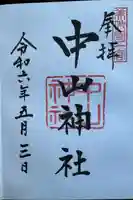 奉拝
中山神社
令和六年五月三日